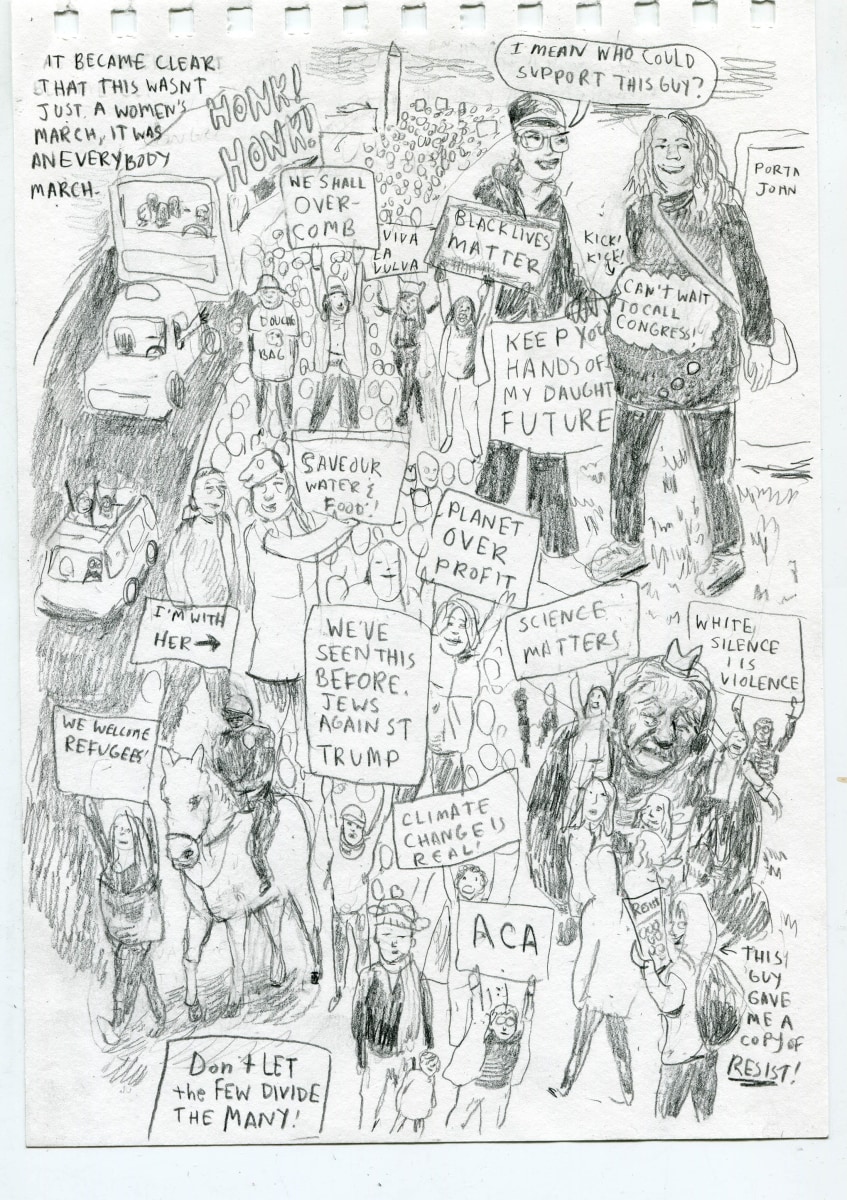 IT BECAME CLEAR
THAT THIS WASNT
JUST A WOMEN'S
MARCH, IT WAS
AN EVERYBODY
MARCH.
HONK!
HONK!
I MEAN WHO COULD
SUPPORT THIS GUY?
PORTA
JOHN
WE SHALL
OVER-
COMB
VIVA
LA
VULVA
BLACK LIVES
MATTER
KICK!
KICK!
CAN'T WAIT
TO CALL
CONGRESS!
DOUCHE
BAG
KEEP YOU
HANDS OF
MY DAUGHT
FUTURE
SAVE OUR
WATER &
FOOD!
PLANET
OVER
PROFIT
I'M WITH
HER →
WE'VE
SEEN THIS
BEFORE.
JEWS
AGAINST
TRUMP
SCIENCE
MATTERS
WHITE
SILENCE
IS
VIOLENCE
WE WELCOME
REFUGEES!
CLIMATE
CHANGE IS
REAL!
ACA
RESIST
THIS
GUY
GAVE
ME A
COPY OF
RESIST!
Don't LET
the FEW DIVIDE
THE MANY!